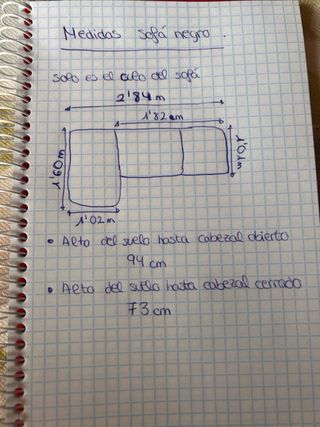 Medidas sofá negro.
Solo es el culo del sofá
2'84 m
1'82 m
1'60 m
1'01 m
1'02 m
• Alto del suelo hasta cabezal abierto
94 cm
• Alto del suelo hasta cabezal cerrado
73 cm